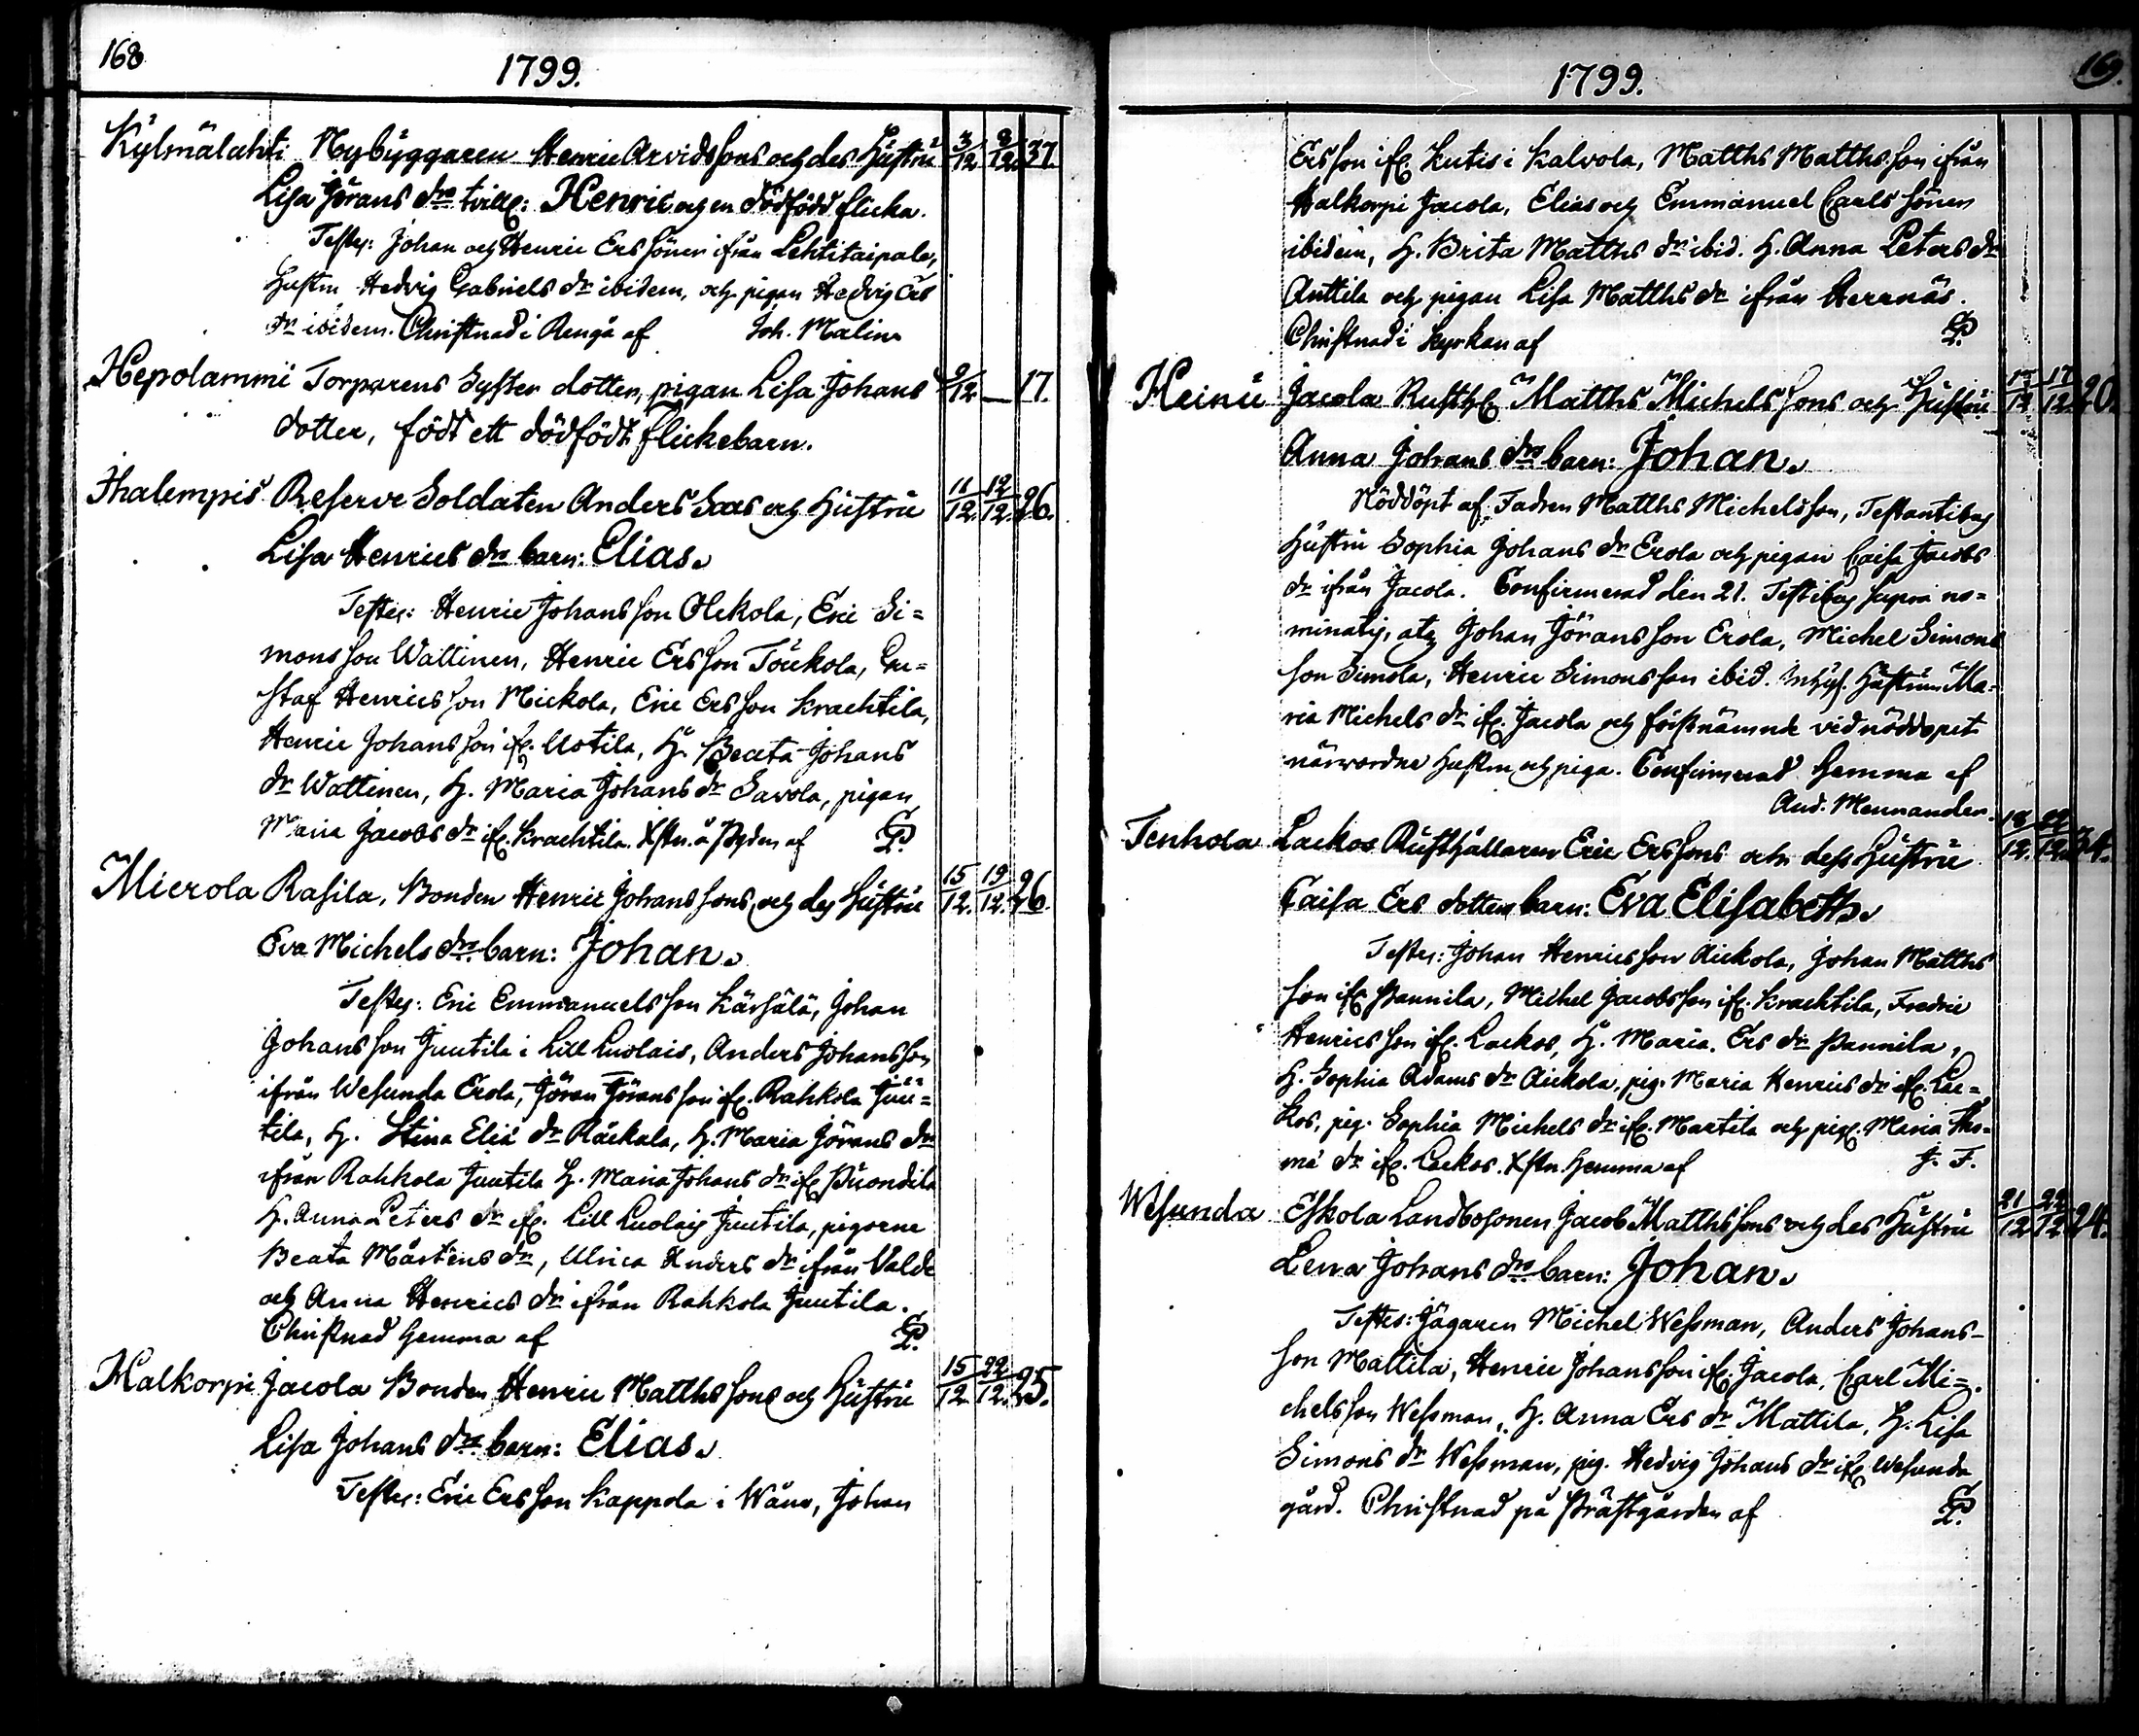 168
1799.
Kylmälahti Nybyggaren Henric Arvidssons och des Hustru 3/12 8/12 37.
Lisa Jörans drs tvill: Henric och en dödfödd flicka.
Testes: Johan och Henric Ers söner ifrån Lehtitaipale,
Hustru Hedvig Gabriels dr ibidem, och pigan Hedvig Ers
dr ibidem. Christnad i Rengå af Joh. Malin
Hepolammi Torparens Syster dotter, pigan Lisa Johans 9/12 — 17.
dotter, födt ett dödfödt flickebarn.
Ihalempis Reserve Soldaten Anders Saxs och Hustru 11/12. 12/12. 26.
Lisa Henrics drs barn: Elias.
Testes: Henric Johansson Olckola, Eric Si=
monsson Wattinen, Henric Ersson Toukola, Gu=
staf Henricsson Mickola, Eric Ersson Krachtila,
Henric Johansson ifr. Uotila, H. Beata Johans
dr Wattinen, H. Maria Johans dr Savola, pigan
Maria Jacobs dr ifr. Krachtila. Xstn. å Byden af
Mierola Rasila, Bonden Henric Johanssons och des Hustru 15/12. 19/12. 26.
Eva Michels drs barn: Johan.
Testes: Eric Emmanuelsson Kärsälä, Johan
Johansson Juutila i Lill Luolais, Anders Johansson
ifrån Wesunda Erola, Jöran Jöransson ifr. Rahkola Juu=
tila, H. Stina Eliæ dr Räckala, H. Maria Jörans dr
ifrån Rahkola Juutila H. Maria Johans dr ifr Puondila
H. Anna Peters dr ifr. Lill Luolais Juutila, pigorne
Beata Mårtens dr, Ulrica Anders dr ifrån Valde
och Anna Henrics dr ifrån Rahkola Juutila.
Christnad hemma af
Halkorpi Jacola Bonden Henric Matthssons och Hustru 15/12. 22/12. 25.
Lisa Johans drs barn: Elias.
Testes: Eric Ersson Kappola i Wånå, Johan
169.
1799.
Ersson ifr. Kutis i Kalvola, Matths Matthsson ifrån
Halkorpi Jacola, Elias och Emmanuel Carls söner
ibidem, H. Brita Matths dr ibid. H. Anna Peters dr
Anttila och pigan Lisa Matths dr ifrån Herrnäs.
Christnad i kyrkan af
Heinu Jacola Rusth. Matths Michelssons och Hustru 17/12 17/12. 20.
Anna Johans drs barn: Johan.
Nöddöpt af Fadren Matths Michelsson, Testantibus
Hustru Sophia Johans dr Erola och pigan Caisa Jacobs
dr ifrån Jacola. Confirmerad den 21. Testibus supra no=
minatis, atq Johan Jöransson Erola, Michel Simons
son Simola, Henric Simonsson ibid. Hustrun Ma=
ria Michels dr ifr. Jacola och förstnämnde vid nöddopet
närvardne hustru och piga. Confirmerad hemma af
And. Mennander.
Tenhola Lackos Rusthållaren Eric Erssons och dess Hustru 18/12. 22/12. 34.
Caisa Ers dotters barn: Eva Elisabeth.
Testes: Johan Henricsson Aickola, Johan Matths
son ifr. Pannila, Michel Jacobsson ifr. Krachtila, Fredric
Henricsson ifr. Lackos, H. Maria Ers dr Pannila,
H. Sophia Adams dr Aickola, pig. Maria Henrics dr ifr. Lac=
kos, pig. Sophia Michels dr ifr. Martila och pig. Maria Tho=
mæ dr ifr. Lackos. Xstn. hemma af J. F.
Wesunda Eskola Landbosonen Jacob Matthssons och des Hustru 21/12 22/12 24.
Lena Johans drs barn: Johan.
Testes: Jägaren Michel Wessman, Anders Johans-
son Mattila, Henric Johansson ifr. Jacola, Carl Mi=
chelsson Wessman, H. Anna Ers dr Mattila, H. Lisa
Simons dr Wessman, pig. Hedvig Johans dr ifr Wesunda
gård. Christnad på Prästgården af